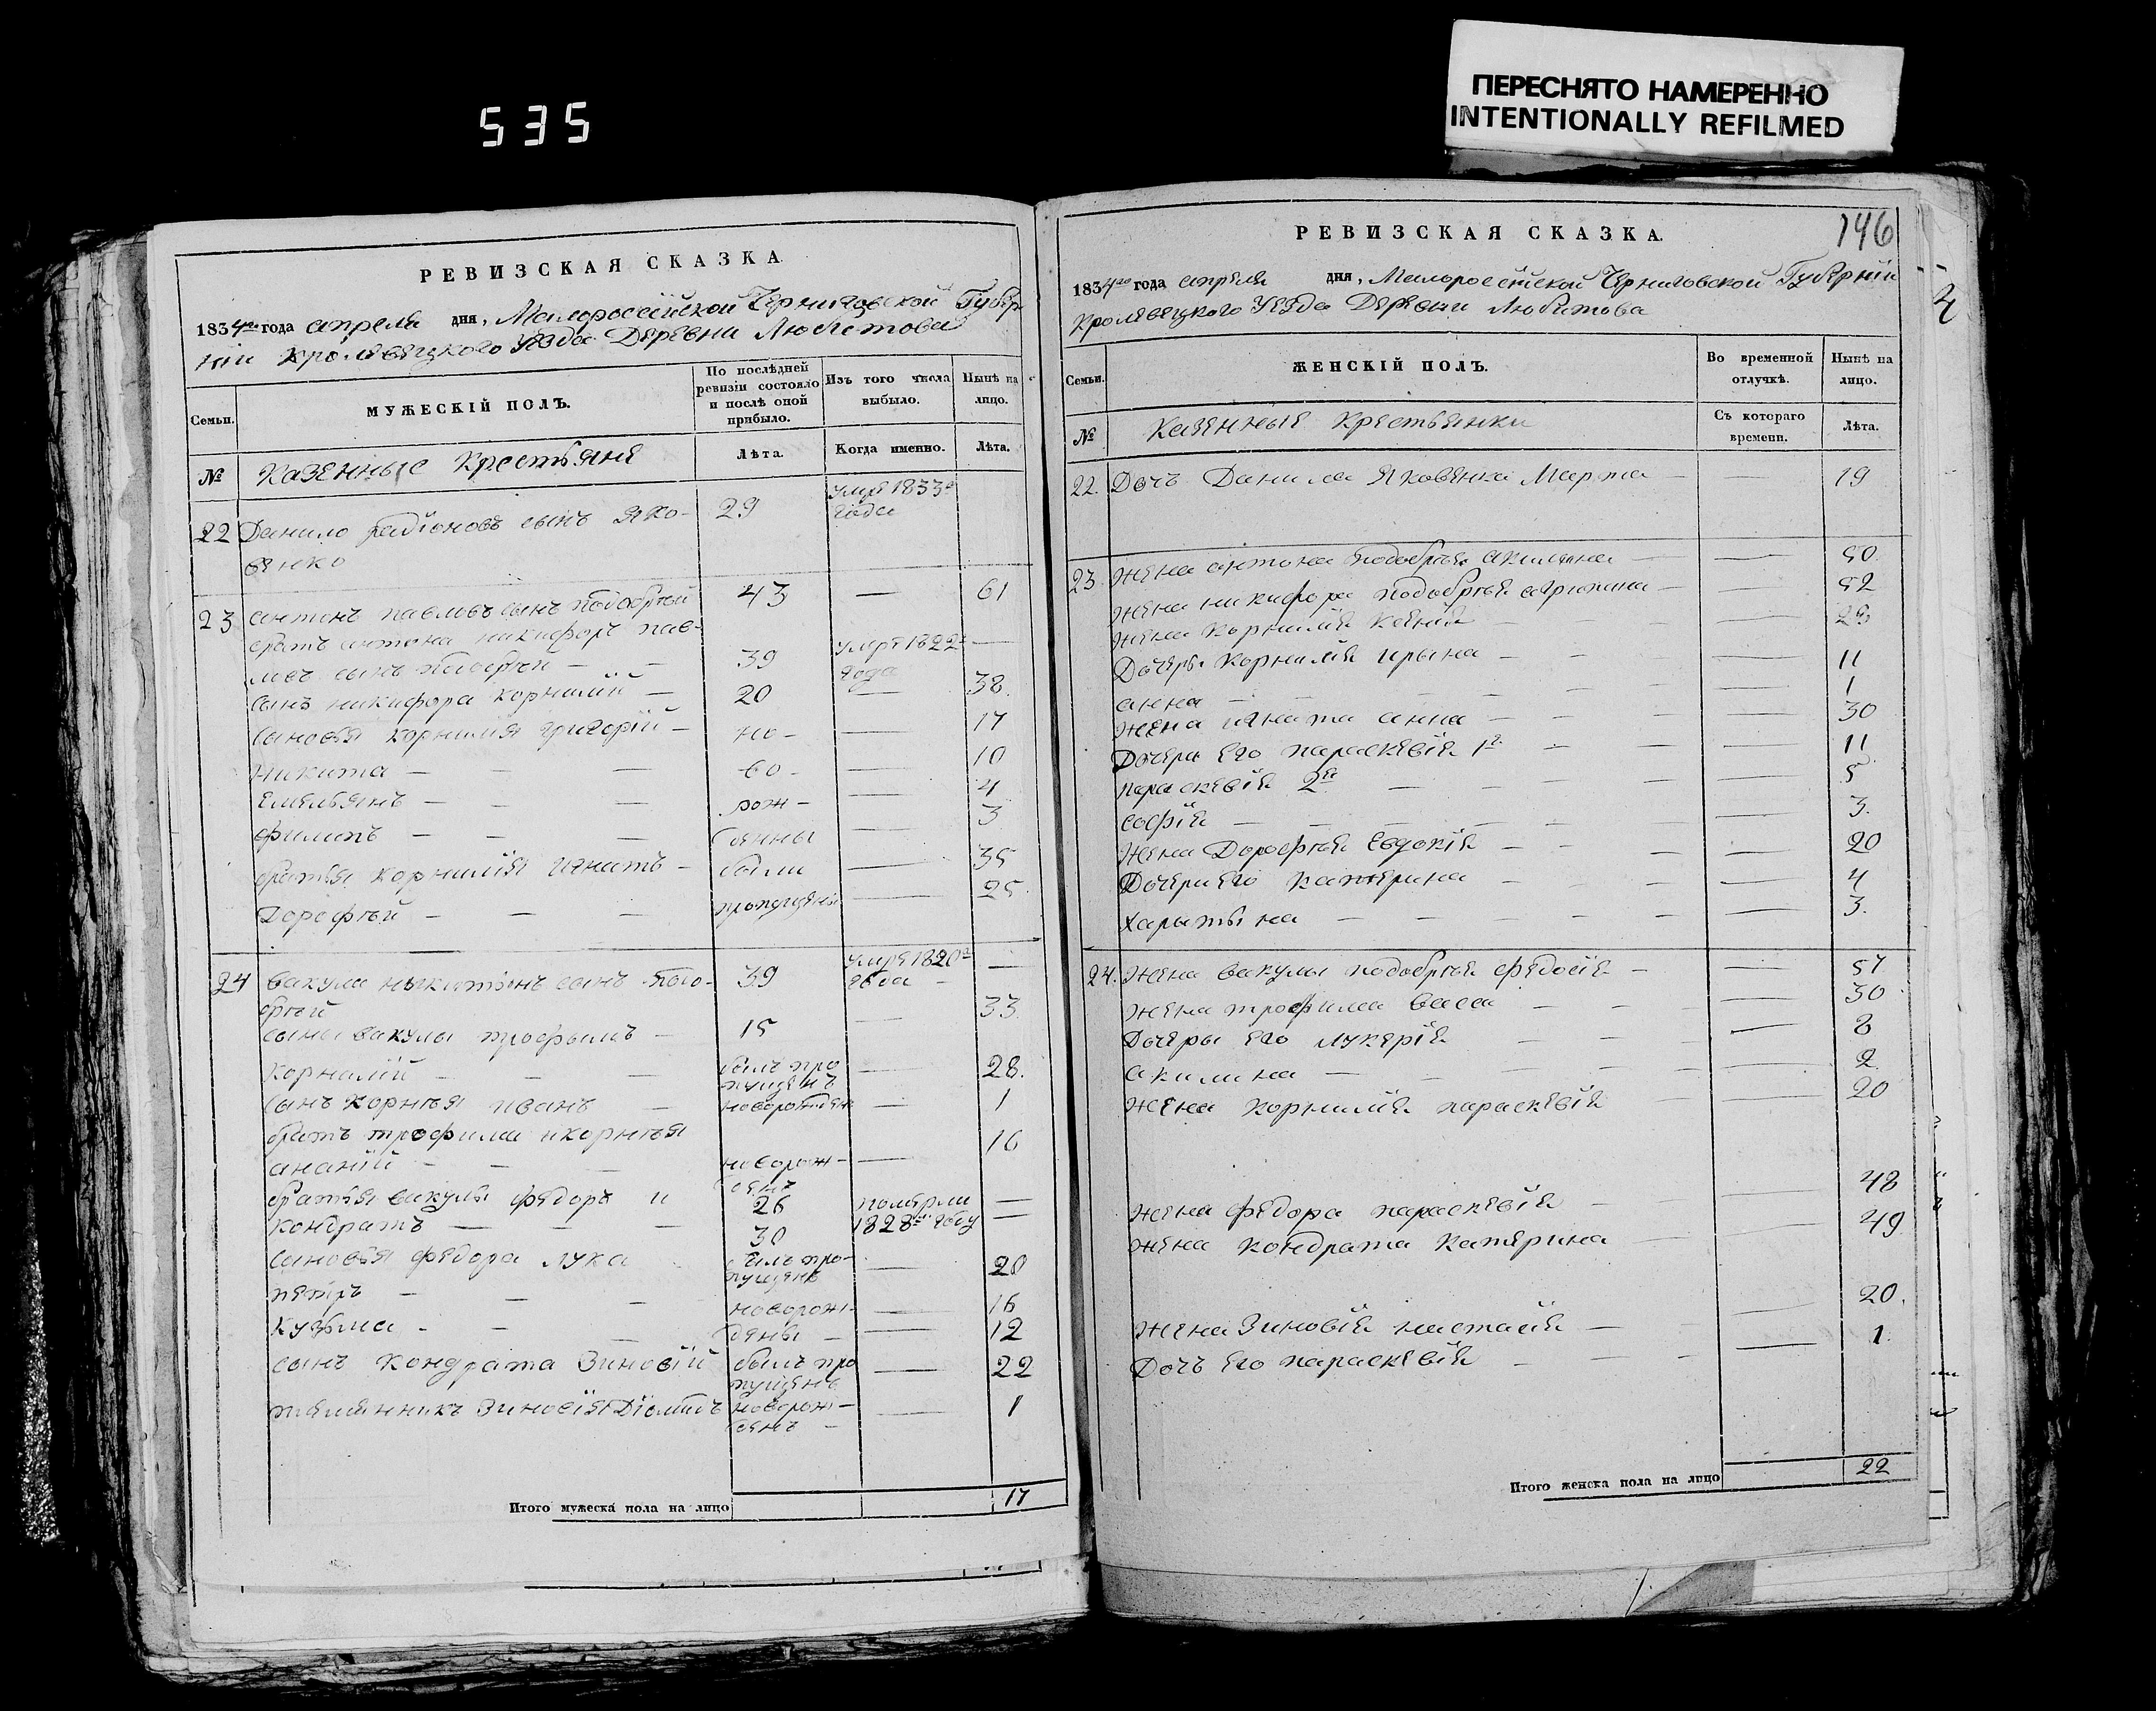 535
ПЕРЕСНЯТО НАМЕРЕННО
INTENTIONALLY REFILMED
РЕВИЗСКАЯ СКАЗКА
1834го года апреля дня, Малоросейской Черниговской Губер
нии Кролевецкого Уезда Деревни Любитова
Семьи.
МУЖЕСКІЙ ПОЛЪ.
По послѣдней
ревизіи состояло
и послѣ оной
прибыло.
Изъ того числа
выбыло.
Нынѣ на
лицо.
№
Казенные Крестьяне
Лѣта.
Когда именно.
Лѣта.
22 Данило радіоновъ сынъ Яко- 29 умре 1833го
венко года
23 антонъ павловъ сынъ подобрѣй 43 — 61
братъ антона никифоръ пав- умре 1822г —
ловъ сынъ подобрѣй — — 39 года
сынъ никифора корнилій — 20 — 38.
сыновья корнилія григорій — но- — 17
Никита — — — во- — 10
Емельянъ — — — рож- — 4
филипъ — — — денны — 3
братья корнилія игнатъ — были — 35
Дорофѣй — — — пропущены — 25
24 вакула никитинъ сынъ подо- 39 умре 1820г —
брѣй года —
сыны вакулы трофымъ — 15 — 33.
корнилій — — — былъ про — 28.
пущенъ
сынъ корнѣя иванъ — новорожден — 1
братъ трофима и корнѣя 16
ананій — — — новорож- —
денъ
братья вакулы федоръ и 26 померли —
кондратъ — — — 30 1828м году —
сыновья федора лука былъ про- — 20
пущенъ
петръ — — — новорож- — 16
Кузьма — — — дены — — 12
сынъ кондрата Зиновій былъ про — 22
пущенъ
племянникъ Зиновія Діомидъ новорож- — 1
денъ —
Итого мужеска пола на лицо 17
РЕВИЗСКАЯ СКАЗКА.
146
1834го года апреля дня, Малоросейской Черниговской Губерніи
Кролевецкого Уезда Деревни Любитова
Семьи.
ЖЕНСКІЙ ПОЛЪ.
Во временной
отлучкѣ.
Нынѣ на
лицо.
№
Казенныя Крестьянки
Съ котораго
времени.
Лѣта.
22. Дочъ Данила Яковенка Марфа — — 19
23. Жена антона подобрѣя акилина — — 50
жена никифора подобрѣя — — 52
жена Корнилія Ксенія — — — 29
Дочеры Корнилія ирына — — — 11
анна — — — — 1
жена игната анна — — — 30
Дочеры его параскевія 1я — — — 11
параскевія 2я — — — 5
софія — — — — 3.
Жена Дорофѣя Евдокія — — — 20
Дочери его катерина — — — 4
харытына — — — — 3.
24. жена вакулы подобрѣя федосія — — 57
жена трофима васа — — — 30
Дочеры его лукерія — — — 8
акилина — — — — 2
жена корнилія параскевія — — 20
жена федора параскевія — — 48
жена кондрата катерина — — 49
жена Зиновія настасія — — 20.
Дочъ его параскевія — — — 1.
Итого женска пола на лицо 22